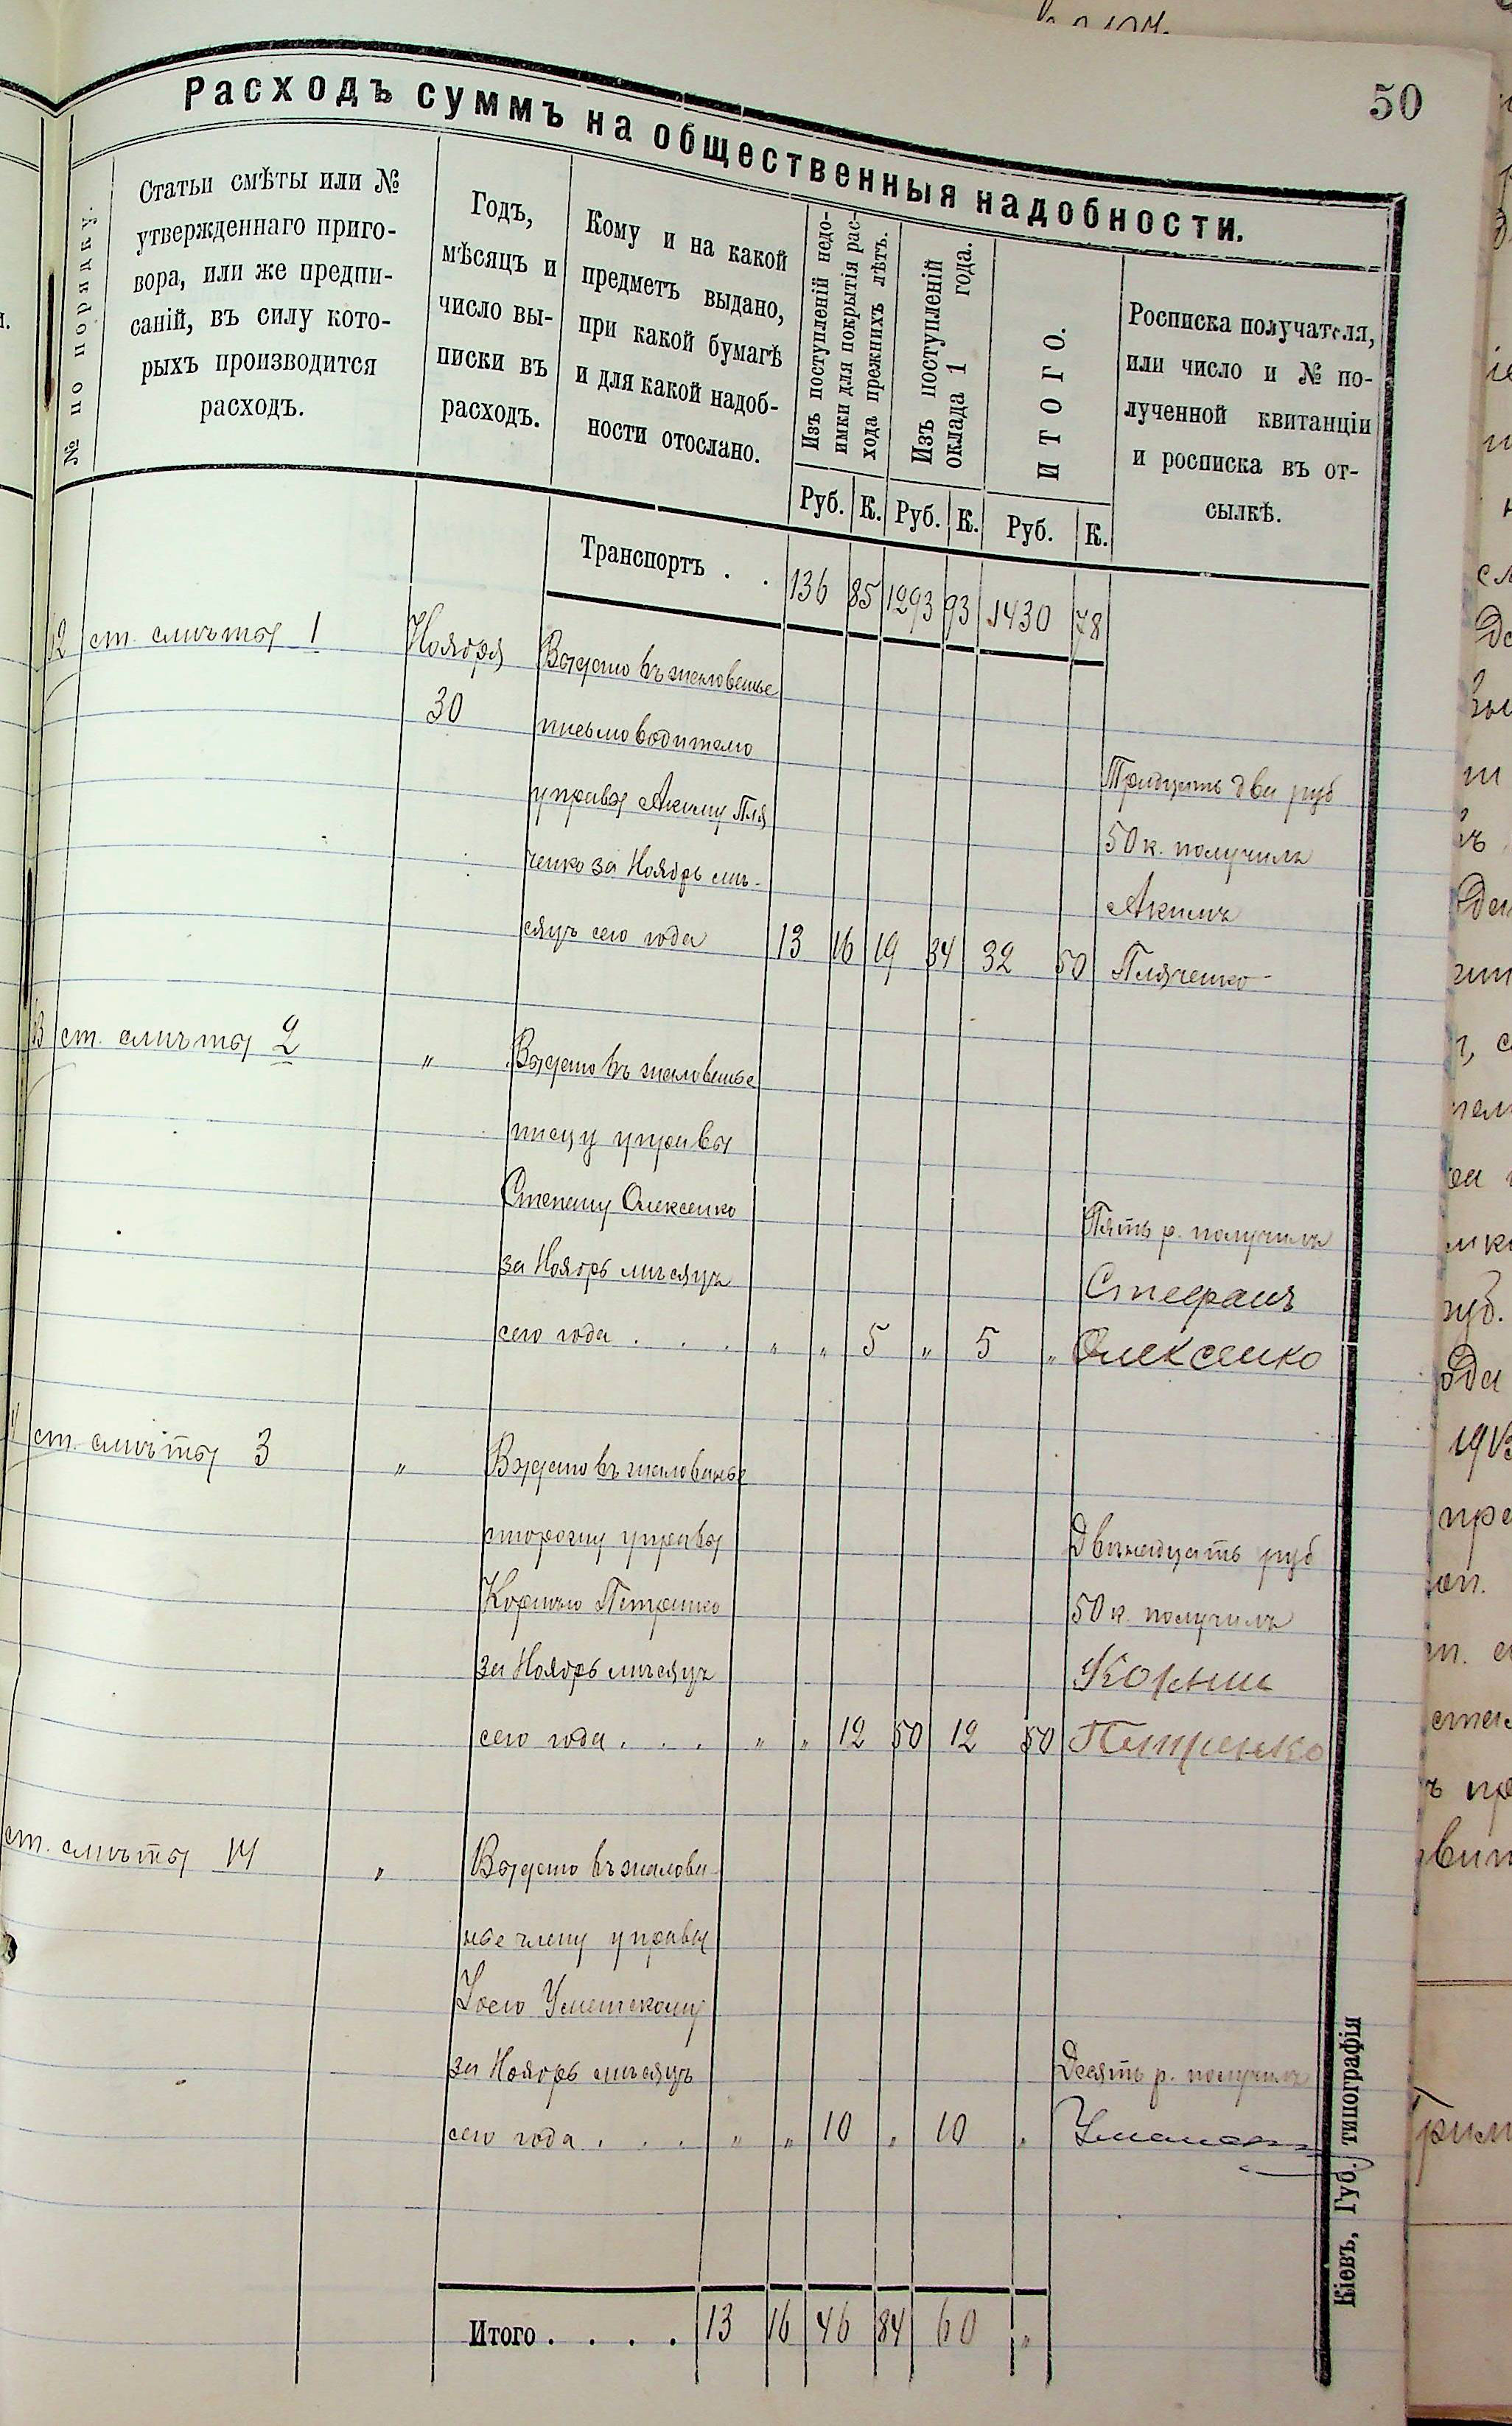 50
Расходъ суммъ на общественныя надобности.
№ по порядку.
Статьи смѣты или №
утвержденнаго приго-
вора, или же предпи-
саній, въ силу кото-
рыхъ производится
расходъ.
Годъ,
мѣсяцъ и
число вы-
писки въ
расходъ.
Кому и на какой
предметъ выдано,
при какой бумагѣ
и для какой надоб-
ности отослано.
Изъ поступленій недо-
имки для покрытія рас-
хода прежнихъ лѣтъ.
Изъ поступленій
оклада 1 года.
ИТОГО.
Росписка получателя,
или число и № по-
лученной квитанціи
и росписка въ от-
сылкѣ.
Руб. К. Руб. К. Руб. К.
Транспортъ . . 136 85 1293 93 1430 78
12 ст. смѣты 1 Ноября Выдано въ жалованье
30 письмоводителю
управы Акиму Пля Тридцать два руб
ченко за Ноябрь мѣ- 50 к. получилъ
Акимъ
сяцъ сего года 13 16 19 34 32 50 Пляченко
ст. смѣты 2 „ Выдано въ жалованье
писцу управы
Степану Олексенко Пять р. получилъ
за Ноябрь мѣсяцъ Стефанъ
сего года . . . „ „ 5 „ 5 „ Олексенко
ст. смѣты 3 „ Выдано въ жалованье
сторожу управы Двѣнадцать руб
Корнѣю Петренко 50 к. получилъ
за Ноябрь мѣсяцъ
сего года . . . „ „ 12 50 12 50 Петренко
ст. смѣты 14 „ Выдано въ жалова-
нье члену управы
за Ноябрь мѣсяцъ Десять р. получилъ
сего года . . . „ „ 10 „ 10 „
Итого . . . . 13 16 46 84 60 „
Кіевъ, Губ. типографія